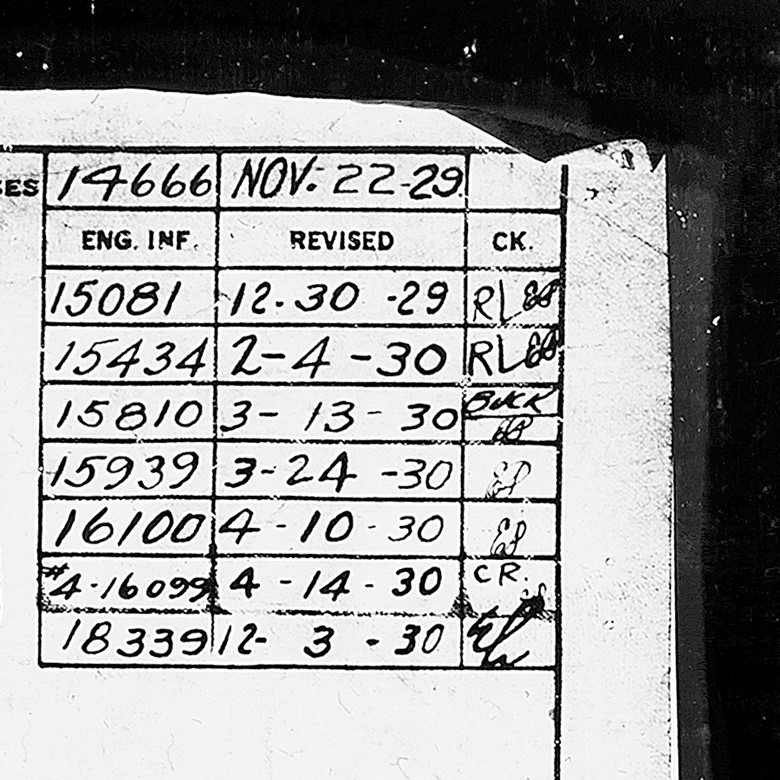 SES 14666 NOV. 22-29
ENG. INF. REVISED CK.
15081 12-30-29 RL
15434 2-4-30 RL
15810 3-13-30 BUCK
15939 3-24-30
16100 4-10-30
#4-16099 4-14-30 CR.
18339 12-3-30